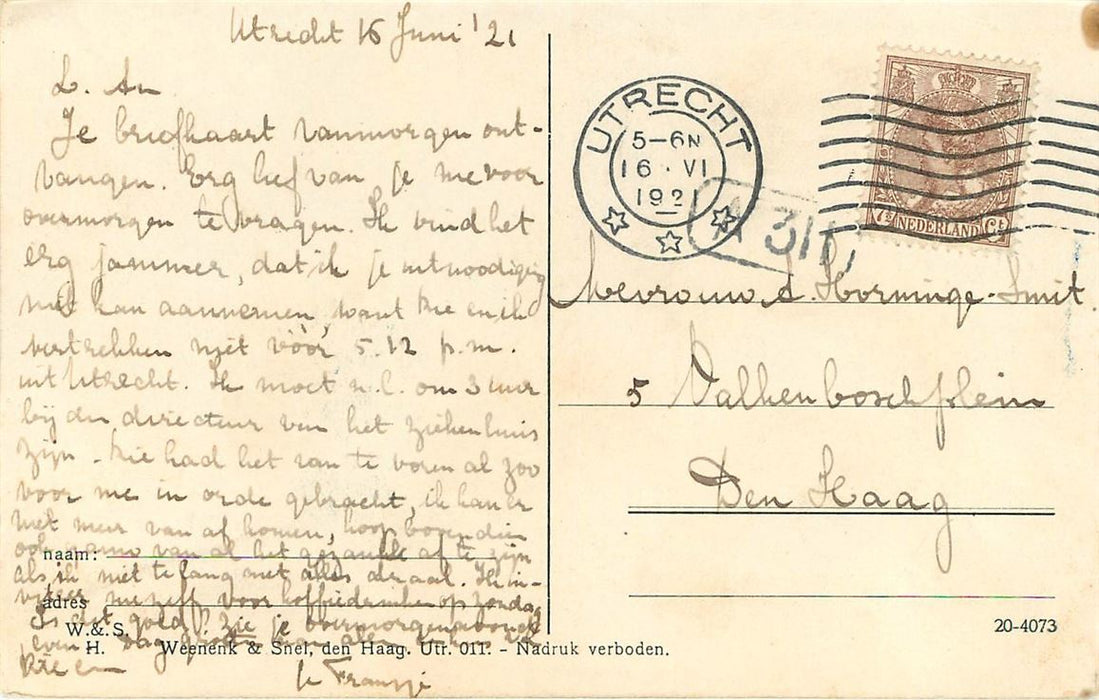 Utrecht 16 Juni '21
L. An
Je briefkaart vanmorgen ont-
vangen. Erg lief van je me voor
overmorgen te vragen. Ik vind het
erg jammer, dat ik je uitnoodiging
niet kan aannemen, want Rie en ik
vertrekken niet vòòr 5.12 p.m.
uit Utrecht. Ik moet n.l. om 3 uur
bij den directeur van het ziekenhuis
zijn. Rie had het van te voren al zoo
voor me in orde gebracht, ik kan er
niet meer van af komen, hoop bovendien
ook van al het af te zijn
als ik niet te lang met alles draal. Ik in-
viteer mezelf voor koffiedrinken op zondag
Is dat goed? Zie je overmorgenavond
even. Dag, groeten aan allen van
Rie en
je Fransje
naam:
adres
W. & S.
H. Weenenk & Snel, den Haag. Utr. 011. - Nadruk verboden.
UTRECHT
5-6N
16 · VI
1921
7½ NEDERLAND Ct
Mevrouw d. Horminge-Smit.
5 Valkenboschplein
Den Haag
20-4073